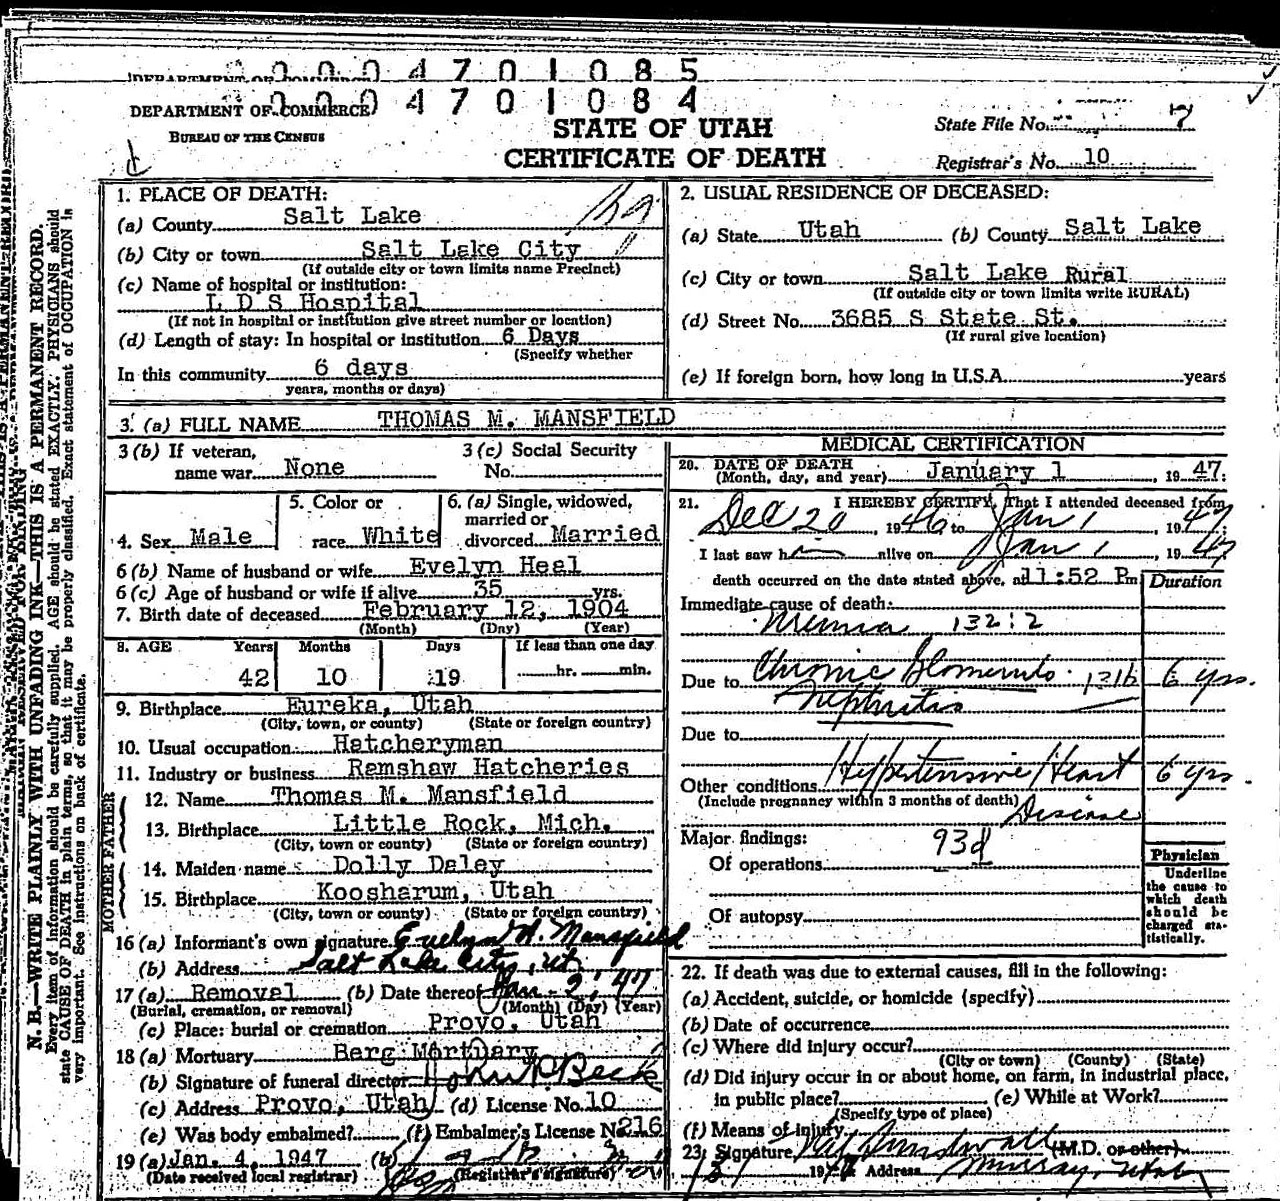 0 0 0 4 7 0 1 0 8 5
0 0 0 4 7 0 1 0 8 4
DEPARTMENT OF COMMERCE
BUREAU OF THE CENSUS
STATE OF UTAH
CERTIFICATE OF DEATH
State File No. 7
Registrar's No. 10
N. B.—WRITE PLAINLY WITH UNFADING INK—THIS IS A PERMANENT RECORD.
Every item of information should be carefully supplied. AGE should be stated EXACTLY. PHYSICIANS should
state CAUSE OF DEATH in plain terms, so that it may be properly classified. Exact statement of OCCUPATION is
very important. See instructions on back of certificate.
1. PLACE OF DEATH:
(a) County Salt Lake
(b) City or town Salt Lake City
(If outside city or town limits name Precinct)
(c) Name of hospital or institution:
L D S Hospital
(If not in hospital or institution give street number or location)
(d) Length of stay: In hospital or institution 6 Days
(Specify whether
In this community 6 days
years, months or days)
2. USUAL RESIDENCE OF DECEASED:
(a) State Utah (b) County Salt Lake
(c) City or town Salt Lake Rural
(If outside city or town limits write RURAL)
(d) Street No. 3685 S State St.
(If rural give location)
(e) If foreign born, how long in U.S.A. years
3. (a) FULL NAME THOMAS M. MANSFIELD
3 (b) If veteran,
name war None
3 (c) Social Security
No.
4. Sex Male
5. Color or
race White
6. (a) Single, widowed,
married or
divorced Married
6 (b) Name of husband or wife Evelyn Heal
6 (c) Age of husband or wife if alive 35 yrs.
7. Birth date of deceased February 12, 1904
(Month) (Day) (Year)
8. AGE Years Months Days If less than one day
42 10 19 hr. min.
9. Birthplace Eureka, Utah
(City, town, or county) (State or foreign country)
10. Usual occupation Hatcheryman
11. Industry or business Ramshaw Hatcheries
FATHER
12. Name Thomas M. Mansfield
13. Birthplace Little Rock, Mich.
(City, town or county) (State or foreign country)
MOTHER
14. Maiden name Dolly Daley
15. Birthplace Koosharum, Utah
(City, town or county) (State or foreign country)
16 (a) Informant's own signature Evelyn H. Mansfield
(b) Address Salt Lake City, Ut.
17 (a) Removal (b) Date thereof Jan - 2, 47
(Burial, cremation, or removal) (Month) (Day) (Year)
(c) Place: burial or cremation Provo, Utah
18 (a) Mortuary Berg Mortuary
(b) Signature of funeral director John P. Beck
(c) Address Provo, Utah (d) License No. 10
(e) Was body embalmed? (f) Embalmer's License No. 216
19 (a) Jan. 4, 1947 (b)
(Date received local registrar) (Registrar's signature)
MEDICAL CERTIFICATION
20. DATE OF DEATH
(Month, day, and year) January 1, 1947.
21. I HEREBY CERTIFY, That I attended deceased from
Dec 20 1946 to Jan 1 1947;
I last saw him alive on Jan 1, 1947
death occurred on the date stated above, at 11:52 Pm
Duration
Immediate cause of death:
Uremia 132:2
Due to Chronic Glomerulo 131b 6 yrs.
Nephritis
Due to
Other conditions Hypertensive Heart 6 yrs.
(Include pregnancy within 3 months of death) Disease
Major findings: 93d
Of operations
Of autopsy
Physician
Underline
the cause to
which death
should be
charged sta-
tistically.
22. If death was due to external causes, fill in the following:
(a) Accident, suicide, or homicide (specify)
(b) Date of occurrence
(c) Where did injury occur?
(City or town) (County) (State)
(d) Did injury occur in or about home, on farm, in industrial place,
in public place? (e) While at Work?
(Specify type of place)
(f) Means of injury
23. Signature (M.D. or other)
Address Murray, Utah